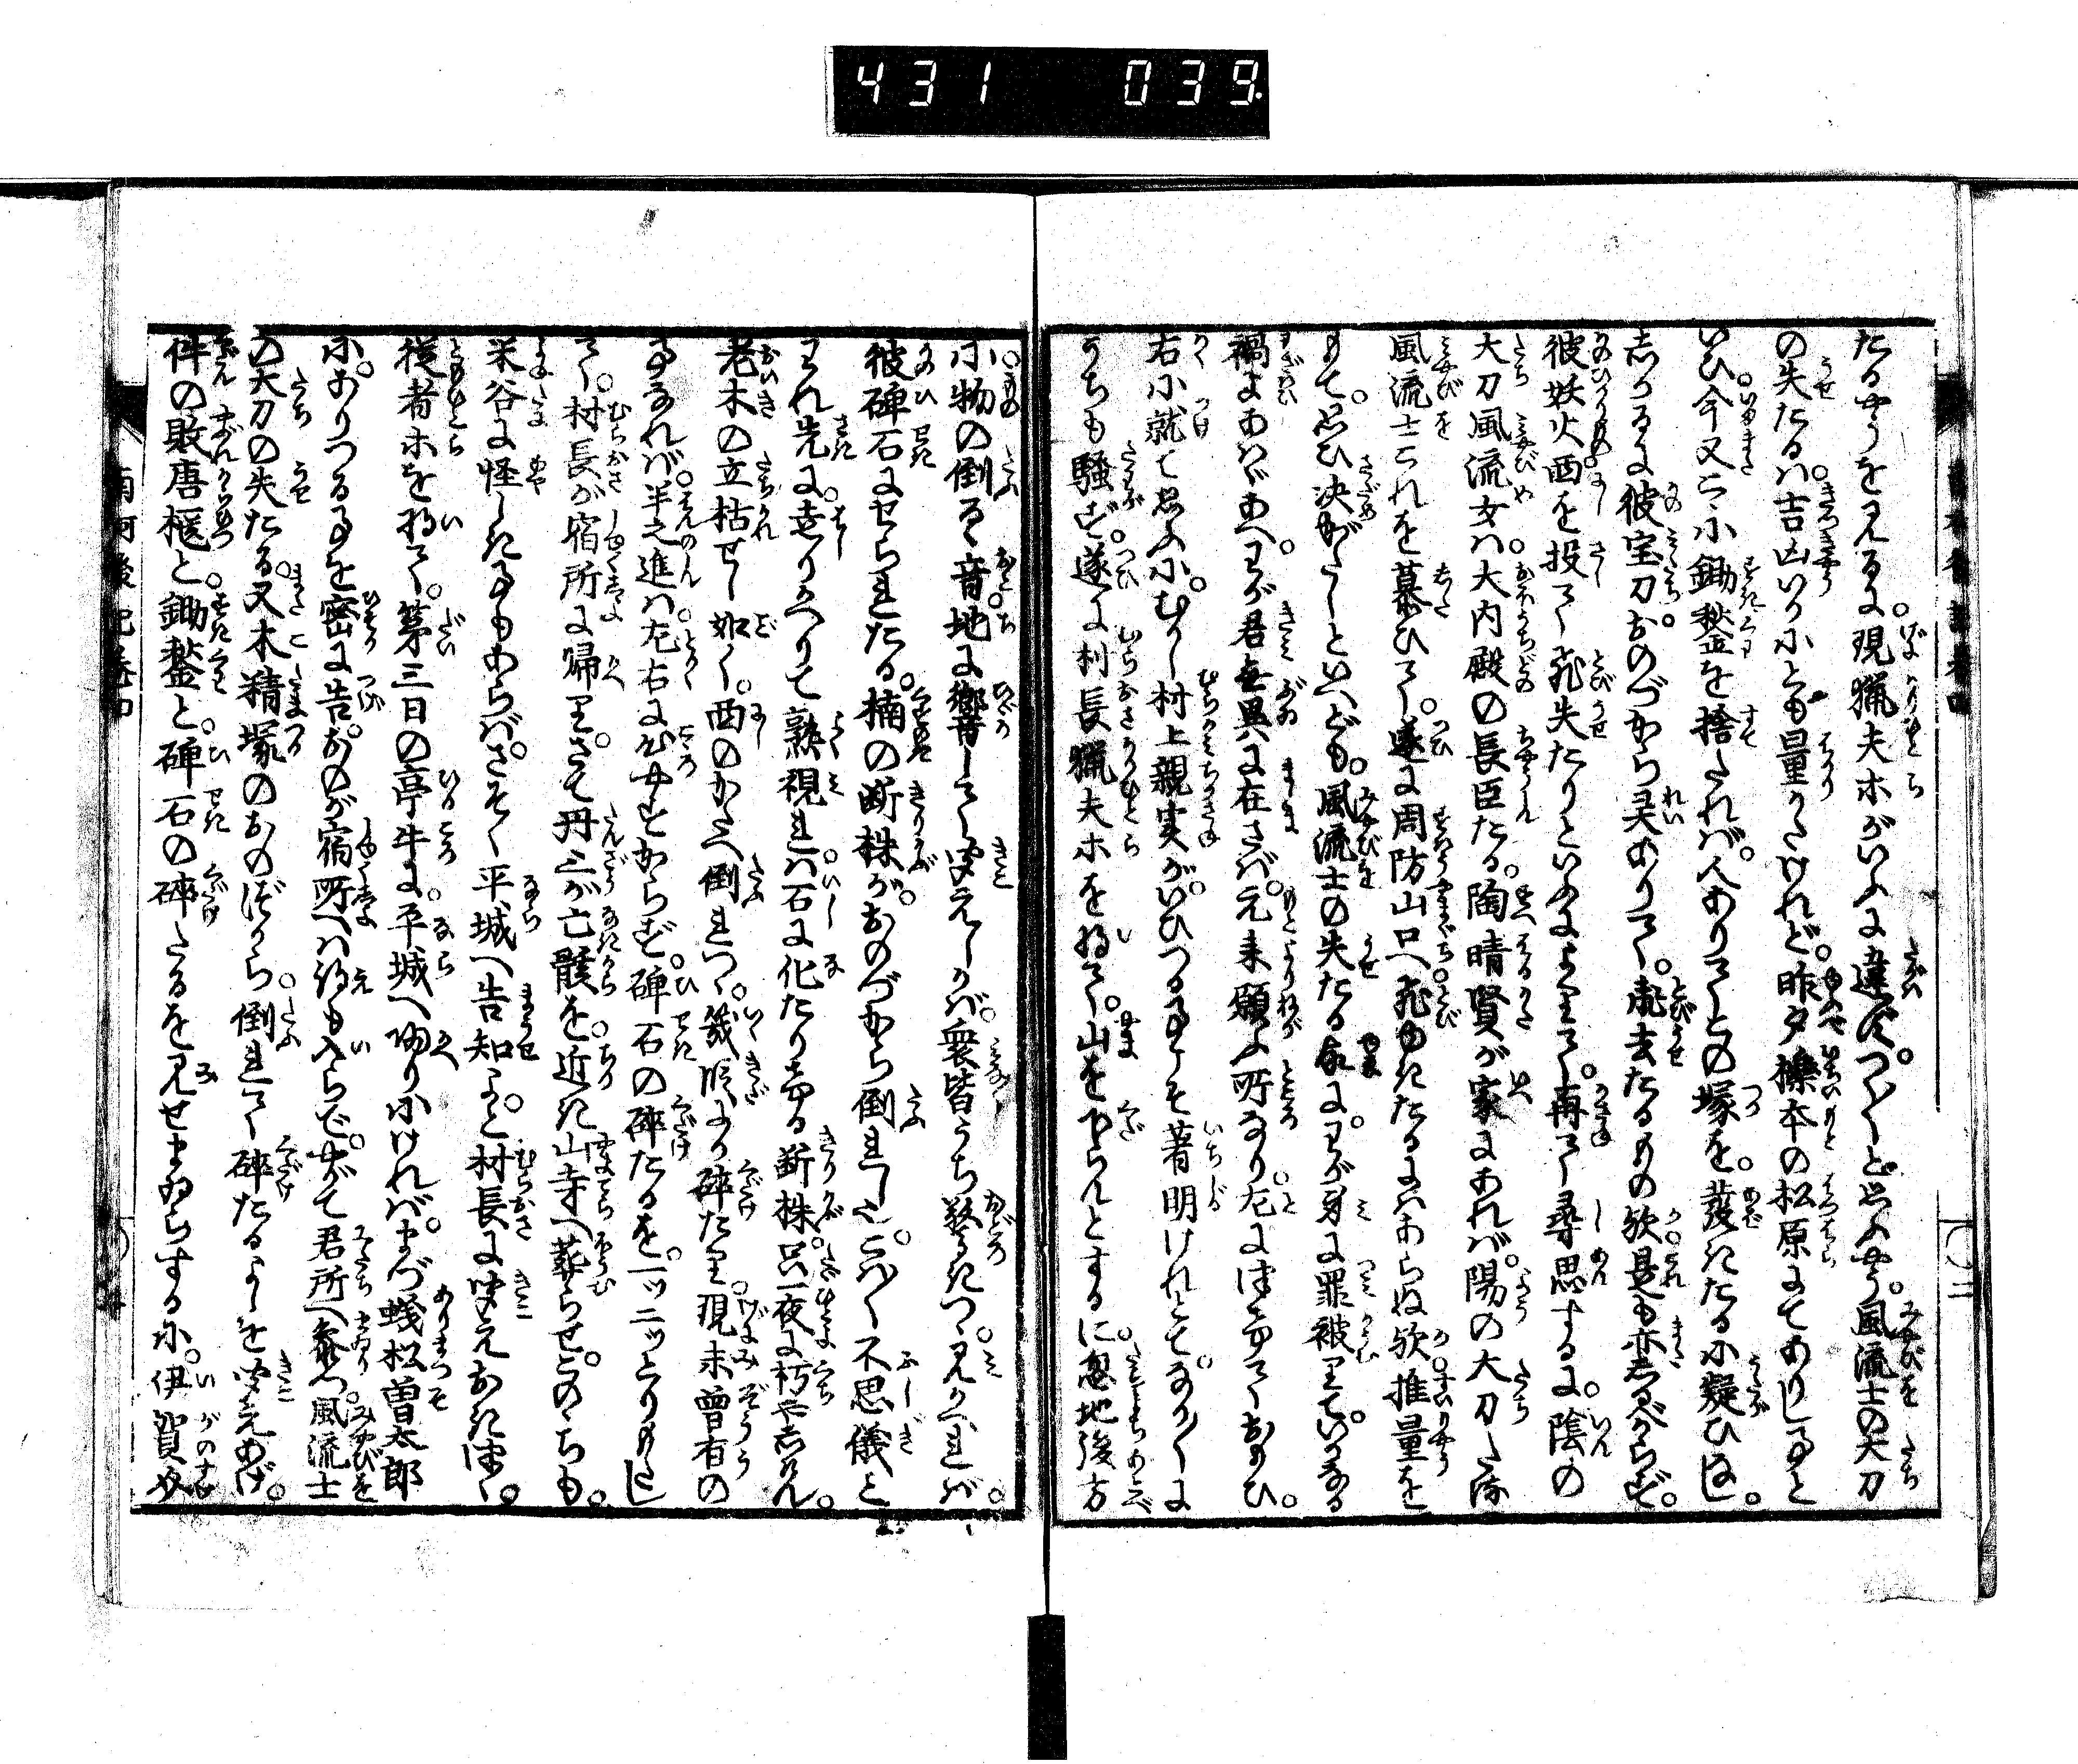 431 039
たるやうをみるに。現猟夫ホがいふに違ず。つく〴〵と思ふやう。風流士の大刀
の失たるは。吉凶いかにとも量かたけれど。昨夕櫟本の松原にてありし事と
いひ。今又こゝに鋤鍫を捨たれば。人ありてこの塚を。發きたるに疑ひなし。
志かるに彼宝刀。おのづから灵ありて。飛去たるもの歟。是も亦志るべからず。
彼妖火西を投て飛失たりといふによりて。再て尋思するに。陰の
大刀風流女は。大内殿の長臣たる。陶晴賢が家にあれば。陽の大刀たる
風流士これを慕ひて。遂に周防山口へ飛ゆきたるにはあらぬ歟。推量を
もて。思ひ决めがたしといへども。風流士の失たる故に。わが身に罪被りて。いかなる
禍にあはゞあへ。わが君無異に在さば。元来願ふ所なり。左にはあらで。おもひ。
右に就て思ふに。むかし村上親実が。いひつる事こそ著明けれとて。なか〳〵に
うちも騒ず。遂に村長猟夫ホを将て。山を下らんとするに。忽地後方
に物の倒るゝ音。地に響して聞えしかば。衆皆うち驚きつ。見かへれば。
彼碑石によせられたる。楠の断株が。おのづから倒れし也。こは〳〵不思儀と
われ先に。走りかへりて熟視れば。石に化たりける断株。只一夜に朽やしけん。
老木の立枯せし如く。西のかたへ倒れつゝ。幾段にか碎たり。現未曽有の
事なれば。半之進は。左右に思ひやすからず。碑石の碎たるを。一ッ二ッとりもたし
て。村長が宿所に帰り。さて丹三が亡骸を。近き山寺へ葬らせ。このゝちも。
米谷に怪しき事もあらば。さそく平城へ告知よ。と村長に聞えおきつゝ。
従者ホを将て。第三日の亭午に。平城へ帰りにければ。まづ蟻松曽太郎
に。ありつる事を密に告。おのが宿所へは得も入らで。やがて君所へ參り。風流士
の大刀の失たる。又木精塚のおのづから。倒れて碎たるよしを聞えあげ。
件の敗唐櫃と。鋤鍫と。碑石の碎たるを見せまゐらするに。伊賀女